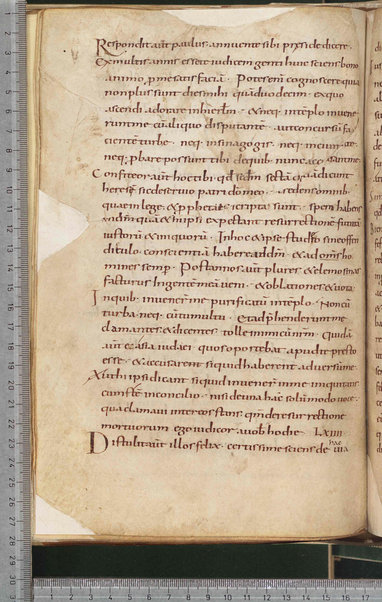 Respondit aut paulus annuente sibi preside dicere.
Ex multis annis esse te iudicem genti huic sciens bono
animo p me satisfaciam. Potes enim cognoscere quia
non plus sunt dies mihi quā duodecim. ex quo
ascendi adorare in hierlm. & neq; in templo invene
runt me cū aliquo disputante. aut concursū fa
ciente turbe. neq; in sinagogis. neq; in civi
neq; pbare possunt tibi de quib; nunc accusant me.
Confiteor aut hoc tibi. qd sectā quā dicunt
heresē. sic deservio patri dō meo. credens omnib;
quae in lege & pphetis scripta sunt. spem habens
in dm quā & hii ipsi expectant resurrectionē futurā
iustorū & iniquorū. In hoc & ipse studeo sine offen
diculo conscientiā habere ad dm. & ad homi
mines semp. Post annos aut plures elemosinas
facturus In gentē meā veni. & oblationes & vota.
In quib; invener me purificatū in templo. Non cū
turba. neq; cū tumultu. & adphenderunt me
clamantes & dicentes. tolle inimicū nrm. quidā
aut ex asia iudaei. quos oportebat apud te presto
esse. & accusare si quid haberent adversū me.
Aut hi ipsi dicant si quid invener in me iniquitatis
cū stē in concilio. nisi de una hac solūmodo voce.
qua clamavi inter eos stans. qm de resurrectione
mortuorum ego iudicor a vob hodie. LXIIII
Distulit aut illos felix. certissime sciens de hac
via